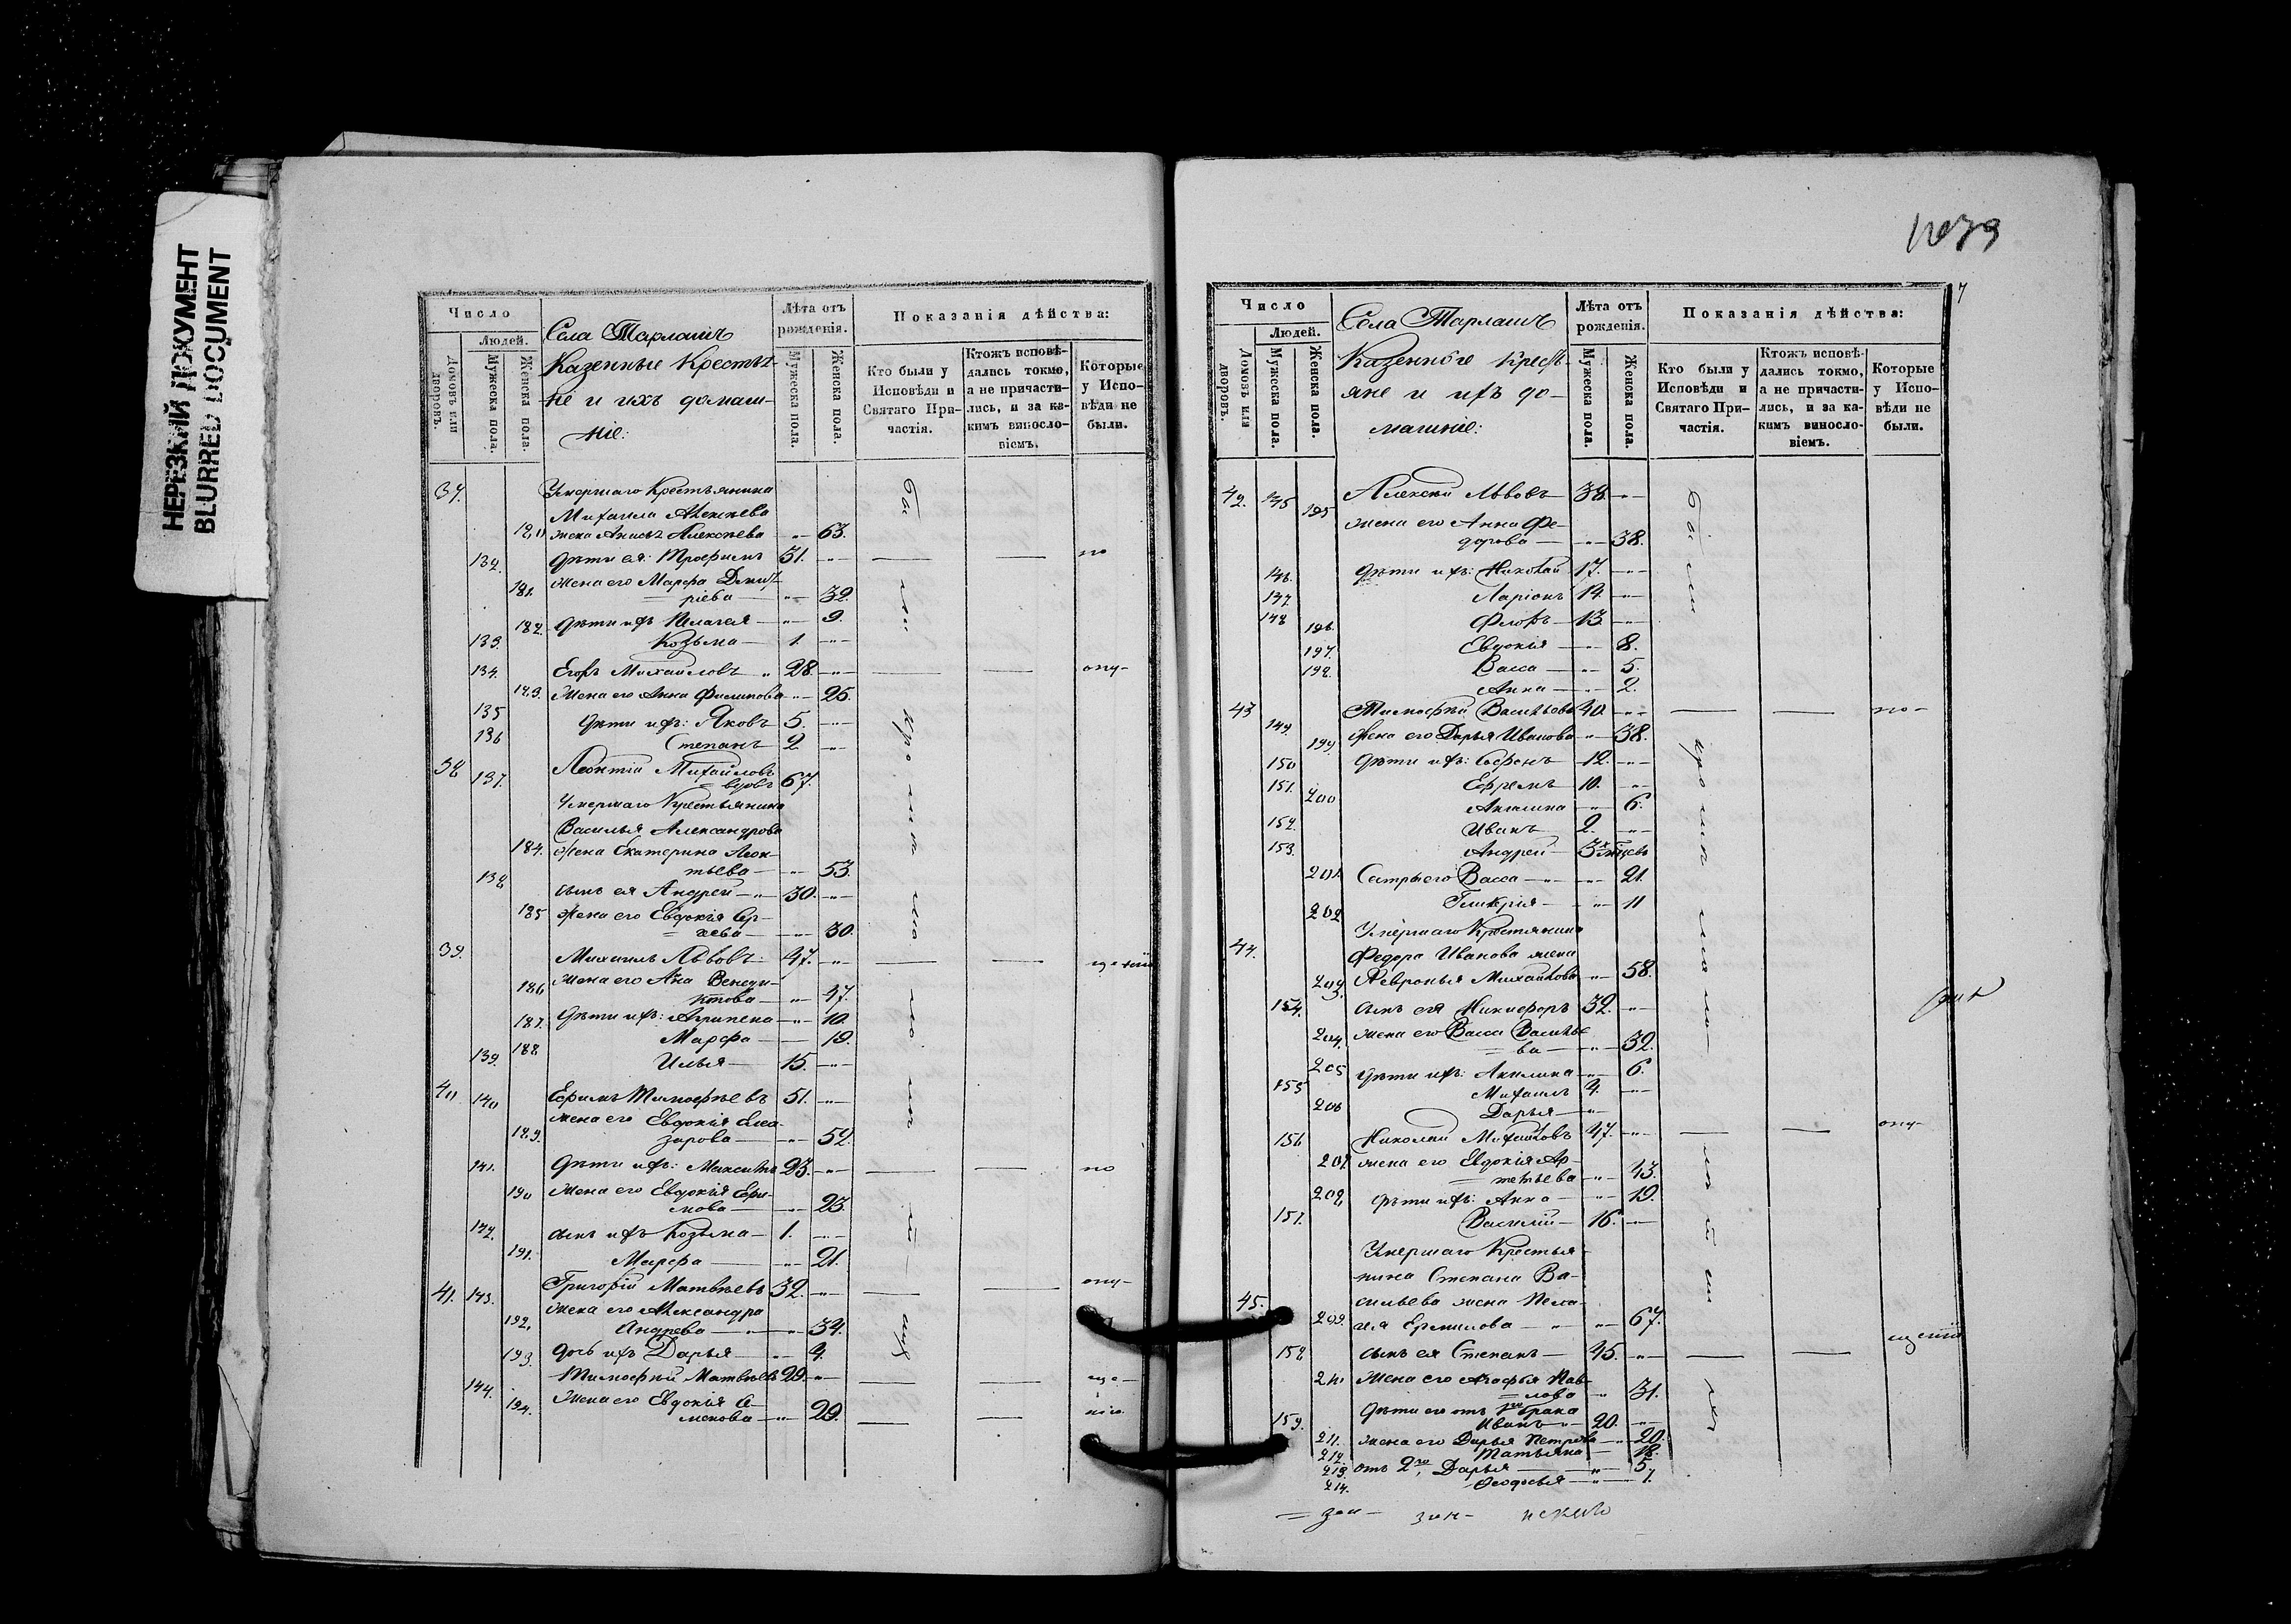 НЕРЕЗКИЙ ДОКУМЕНТ
BLURRED DOCUMENT
Число
Людей.
Домовъ или дворовъ.
Мужеска пола.
Женска пола.
Села Тарлашъ
Казенные Крестья-
не и ихъ домаш-
ніе:
Лѣта отъ рожденія.
Мужеска пола.
Женска пола.
Показанія дѣйства:
Кто были у Исповѣди и Святаго При-частія.
Ктожъ исповѣ-дались токмо, а не причасти-лись, и за ка-кимъ винословіемъ.
Которые у Испо-вѣди не были.
37. Умершаго Крестьянина
Михаила Алексѣева
180 жена Алексѣева 63.
132. дѣти ея: Трофимъ 31. по
181. жена его Марфа Дмит-
ріева 32.
182. дѣти ихъ Пелагея 9.
133. Козьма 1
134. Егоръ Михайловъ 28. опу-
183. Жена его Анна Филипова 25.
135 дѣти ихъ: Яковъ 5.
136 Степанъ 2
38 137. Леонтій Михайловъ
вдовъ 67.
Умершаго Крестьянина
Василья Александрова
184. Жена Екатерина Леон-
тьева 53.
138 сынъ ея Андрей 30.
185 Жена его Евдокія
30.
39. Михаилъ Львовъ 47.
186 Жена его Ана Венеди-
ктова 47.
187. Дѣти ихъ: Агрипена 10.
188 Марфа 19.
139. Илья 15.
40 140 Ефимъ Тимофѣевъ 51.
189. жена его Евдокія Елеа-
зарова 52.
141. Дѣти ихъ: Максимъ 23. по
190 Жена его Евдокія Ефи-
мова 23.
142. сынъ ихъ Козьма 1.
191. Марфа 21.
41. 143. Григорій Матвѣевъ 32. опу-
192. Жена его Александра
Андреева 34.
193. дочь ихъ Дарья 4.
144. Тимофей Матвѣевъ 29. ще-
194. Жена его Евдокія Се-
менова 29. нію
Число
Людей.
Домовъ или дворовъ.
Мужеска пола.
Женска пола.
Села Тарлашъ
Казенные Кресть-
яне и ихъ до-
машніе:
Лѣта отъ рожденія.
Мужеска пола.
Женска пола.
Показанія дѣйства:
Кто были у Исповѣди и Святаго При-частія.
Ктожъ исповѣ-дались токмо, а не причасти-лись, и за ка-кимъ винословіемъ.
Которые у Испо-вѣди не были.
42. 145 195 Алексѣй Львовъ 38.
жена его Анна Фе-
дорова 38.
146. дѣти ихъ: Николай 17.
147 Ларіонъ 14.
148 Флоръ 13
196. Евдокія 8.
197. Васса 5.
198. Анна 2.
43 149. Тимофѣй Васильевъ 40. по-
199 Жена его Дарья Иванова 38.
150 Дѣти ихъ: 12.
151. Ефремъ 10.
200 Акилина 6.
152. Иванъ 2.
153. Андрей 3хъ мѣсцевъ
201 Сестры его Васса 21.
202 Гликерія 11
44. Умершаго Крестьянина
Федора Иванова жена
203. Февронья Михайлова 58.
154. сынъ ея Никифоръ 32.
204. жена его Васса Василье-
ва 32.
205 дѣти ихъ: Акилина 6.
155 Михаилъ 4.
206 Дарья
156 Николай Михайловъ 47. опу-
207. жена его Евдокія Ар-
темьева 43.
208 дѣти ихъ: Анна 19.
157. Василій 16.
45. Умершаго Крестья-
нина Степана Ва-
сильева жена Пела-
209. гея Ермилова 67.
158 сынъ ея Степанъ 45. щенію
210 Жена его Агафья Пав-
лова 31.
Дѣти его отъ 1го брака
159. Иванъ 20.
211. жена его Дарья Петрова 20.
212. Татьяна 18.
213. отъ 2го, Дарья 5.
214. Феодосья 1.